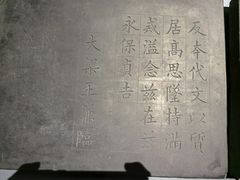 反奢代文以質
居高思隆持滿
戒溢念茲在
永保貞吉
大
王
臨